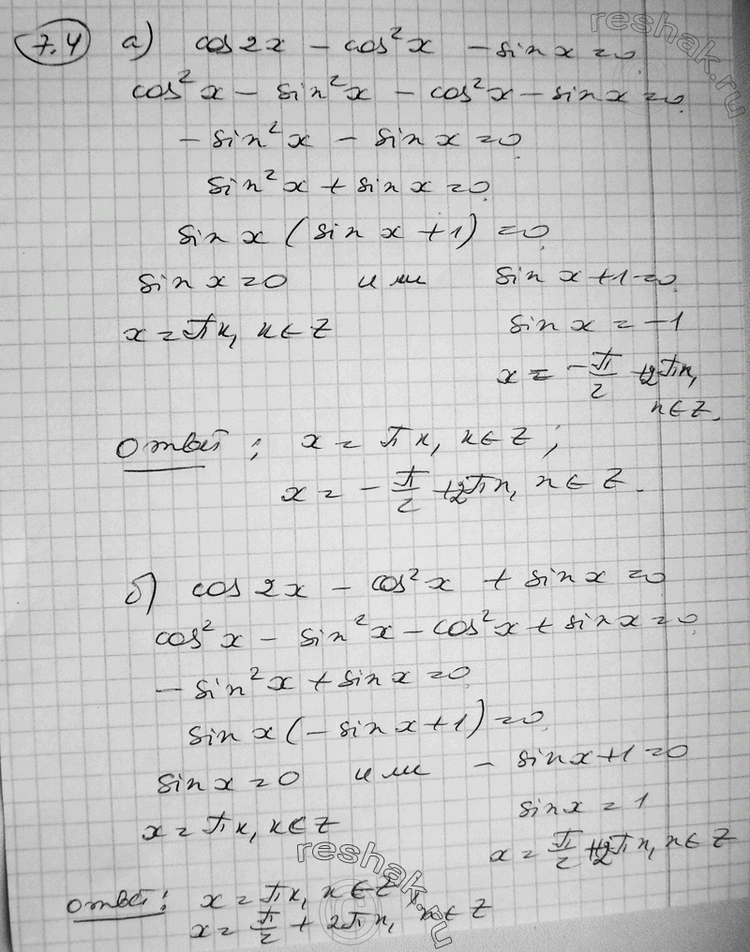 reshak.ru
7.4 а) cos2x - cos²x - sinx = 0
cos²x - sin²x - cos²x - sinx = 0
-sin²x - sinx = 0
sin²x + sinx = 0
sin x (sin x + 1) = 0
sin x = 0 или sin x + 1 = 0
x = πk, k ∈ Z sin x = -1
x = -π/2 + 2πn,
n ∈ Z.
Ответ: x = πk, k ∈ Z;
x = -π/2 + 2πn, n ∈ Z.
б) cos2x - cos²x + sinx = 0
cos²x - sin²x - cos²x + sinx = 0
-sin²x + sinx = 0
sin x (-sin x + 1) = 0
sin x = 0 или -sinx + 1 = 0
x = πk, k ∈ Z sinx = 1
x = π/2 + 2πn, n ∈ Z
reshak.ru
Ответ: x = πk, k ∈ Z;
x = π/2 + 2πn, n ∈ Z